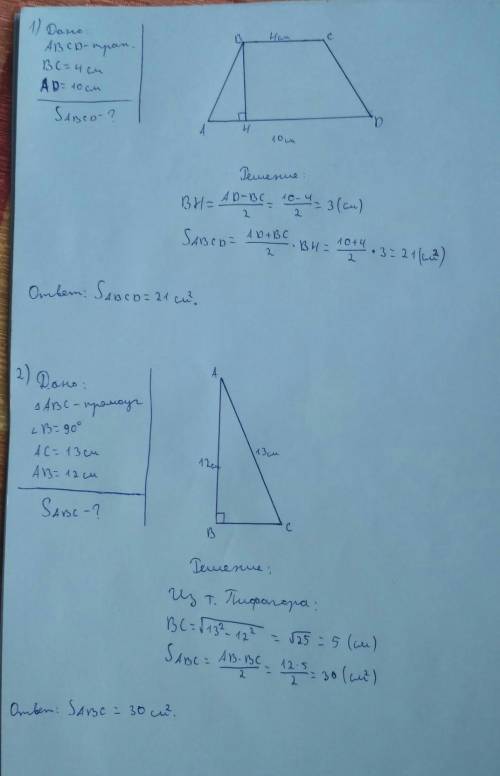 1) Дано:
ABCD-трап.
BC=4см
AD=10см
S ABCD-?
B 4см C
A H D
10см
Решение:
BH= AD-BC/2 = 10-4/2 = 3(см)
S ABCD= AD+BC/2 · BH= 10+4/2 · 3=21(см²)
Ответ: S ABCD=21см².
2) Дано:
△ABC-прямоуг
∠B=90°
AC=13см
AB=12см
S ABC-?
A
12см 13см
B C
Решение:
Из т. Пифагора:
BC=√13²-12² = √25 = 5 (см)
S ABC = AB·BC/2 = 12·5/2 = 30 (см²)
Ответ: S ABC = 30см².